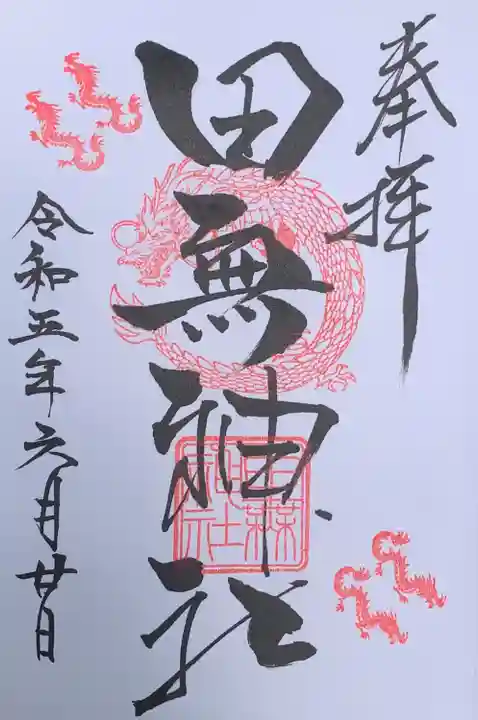 奉拝
田無神社
田無神社
令和五年六月廿日